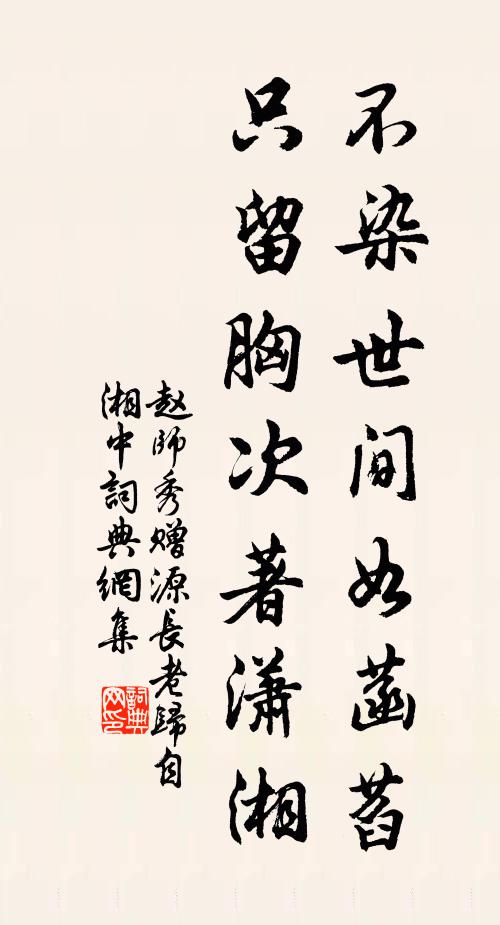 不染世间如菡萏
只留胸次著潇湘
赵师秀赠源長老歸自
湘中詞典網集
詞典网印